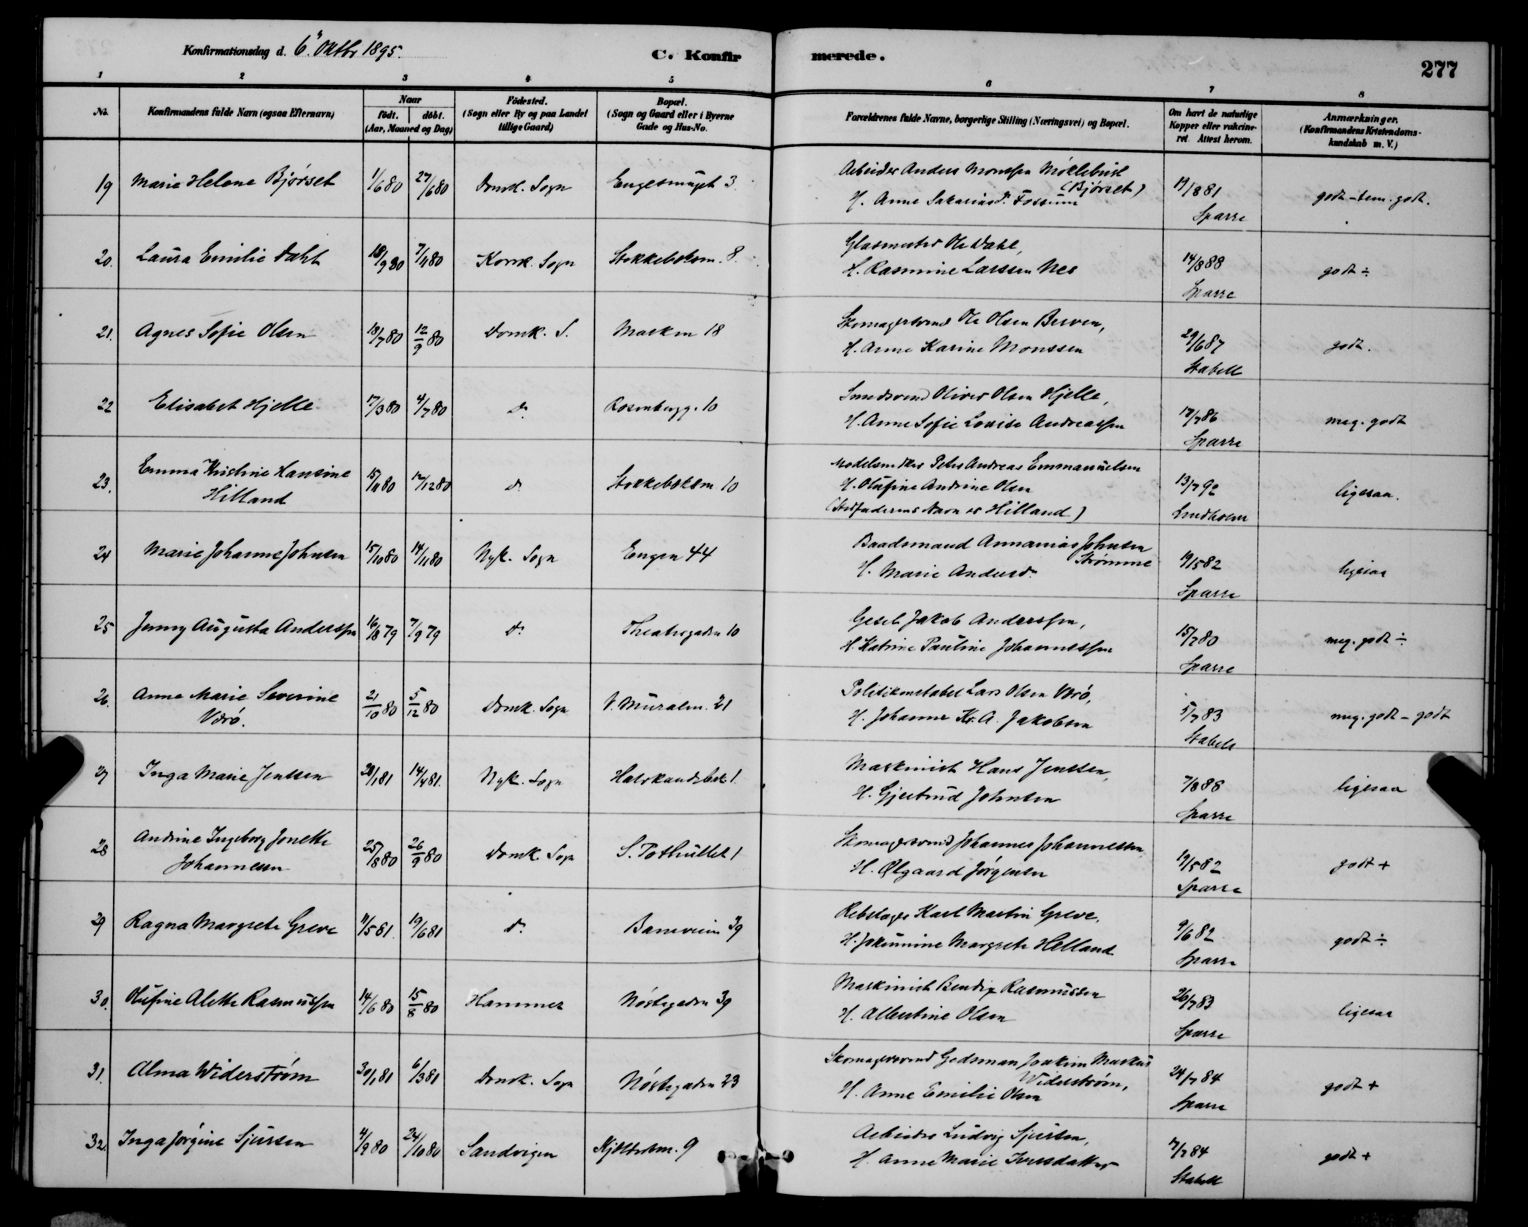 Konfirmationsdag d. 6. Oktbr 1895.
C. Konfirmerede.
277
1 2 3 4 5 6 7 8
No.
Konfirmandens fulde Navn (ogsaa Efternavn)
Naar
født. døbt.
(Aar, Maaned og Dag)
Fødested.
(Sogn eller By og paa Landet
tillige Gaard)
Bopæl.
(Sogn og Gaard eller i Byerne
Gade og Hus-No.
Forældrenes fulde Navne, borgerlige Stilling (Næringsvei) og Bopæl.
Om havt de naturlige
Kopper eller vakcineret
Attest herom.
Anmærkninger.
(Konfirmandens Kristendomskundskab
m. V.)
19 Marie Helene Bjørset 1/6 80 27/6 80 Domk. Sogn Engesmuget 3 Arbeider Anders Monssen Møklebust
(Bjørset)
H. Anne Sakariasd. Fossum 17/8 81
Sparre
godt - tem. godt.
20. Laura Emilie Dahl 18/9 80 7/11 80 Korsk. Sogn Stokkebakm. 8. Glasmester Ole Dahl,
H. Rasmine Larssen Nes 14/8 88
Sparre
godt ÷
21. Agnes Sofie Olsen 18/7 80 12/9 80 Domk. S. Marken 18 Skomagersvend Ole Olsen Berven,
H. Anne Karine Monssen 29/6 87
Stabell
godt.
22 Elisabet Hjelle 17/3 80 4/7 80 do Rosenbergg. 10 Smedsvend Oliver Olsen Hjelle,
H. Anne Sofie Lovise Andreassen 17/7 86
Sparre
meg. godt
23. Emma Kristine Hansine
Hilland 15/11 80 12/12 80 do Stokkebakkm 10 Modelsnedker Peter Andreas Emmanuelsen
H. Olufine Andrine Olsen
(Stedfaderens Navn er Hilland) 13/7 92
Lindholm
ligesaa.
24 Marie Johanne Johnsen 15/10 80 14/11 80 Nyk. Sogn Engen 44 Baadsmand Annanias Johnsen
Strømme
H. Marie Andersd. 19/5 82
Sparre
ligesaa
25 Jenny Augusta Anderssen 16/8 79 7/9 79 do Theatergaden 10 Gesel Jakob Anderssen,
H. Katrine Pauline Johannessen 15/7 80
Sparre
meg. godt ÷
26. Anna Marie Severine
Værø. 21/10 80 5/12 80 Domk. Sogn V. Muralm. 21 Politikonstabel Lars Olsen Værø,
H. Johanne Kr. A. Jakobsen 5/7 83
Stabell
meg. godt - godt
27 Inga Marie Jenssen 28/1 81 14/4 81. Nyk. Sogn 1. Maskinist Hans Jenssen,
H. Gjertrud Johnsen 7/8 88
Sparre
ligesaa
28 Andrine Ingeborg Jonette
Johannessen 25/8 80 26/9 80 Domk. Sogn 1 Skomagersvend Johannes Johannessen,
H. Ølgaard Jørgensen 19/5 82
Sparre
godt +
29 Ragna Margrete Greve 11/5 81. 19/6 81 do Baneveien 39 Rebslager Karl Martin Greve,
H. Jokumine Margrete Helland 9/6 82
Sparre
godt ÷
30. Olufine Alette Rasmussen 14/6 80 15/8 80 Hammer Nøstegaden 39 Maskinist Bendix Rasmussen
H. Albertine Olsen 26/7 83
Sparre
ligesaa
31. Alma Widerstrøm 30/1 81 6/3 81 Domk. Sogn Nøstegaden 23 Skomagersvend Gedsman Joakim Markus
Widerstrøm,
H. Anne Emilie Olsen 24/7 84
Sparre
godt +
32. Inga Jørgine Sjursen 4/9 80 24/10 80 Sandvigen 9 Arbeider Ludvig Sjursen,
H. Anne Marie Iversdatter 17/7 84
Stabell
godt +